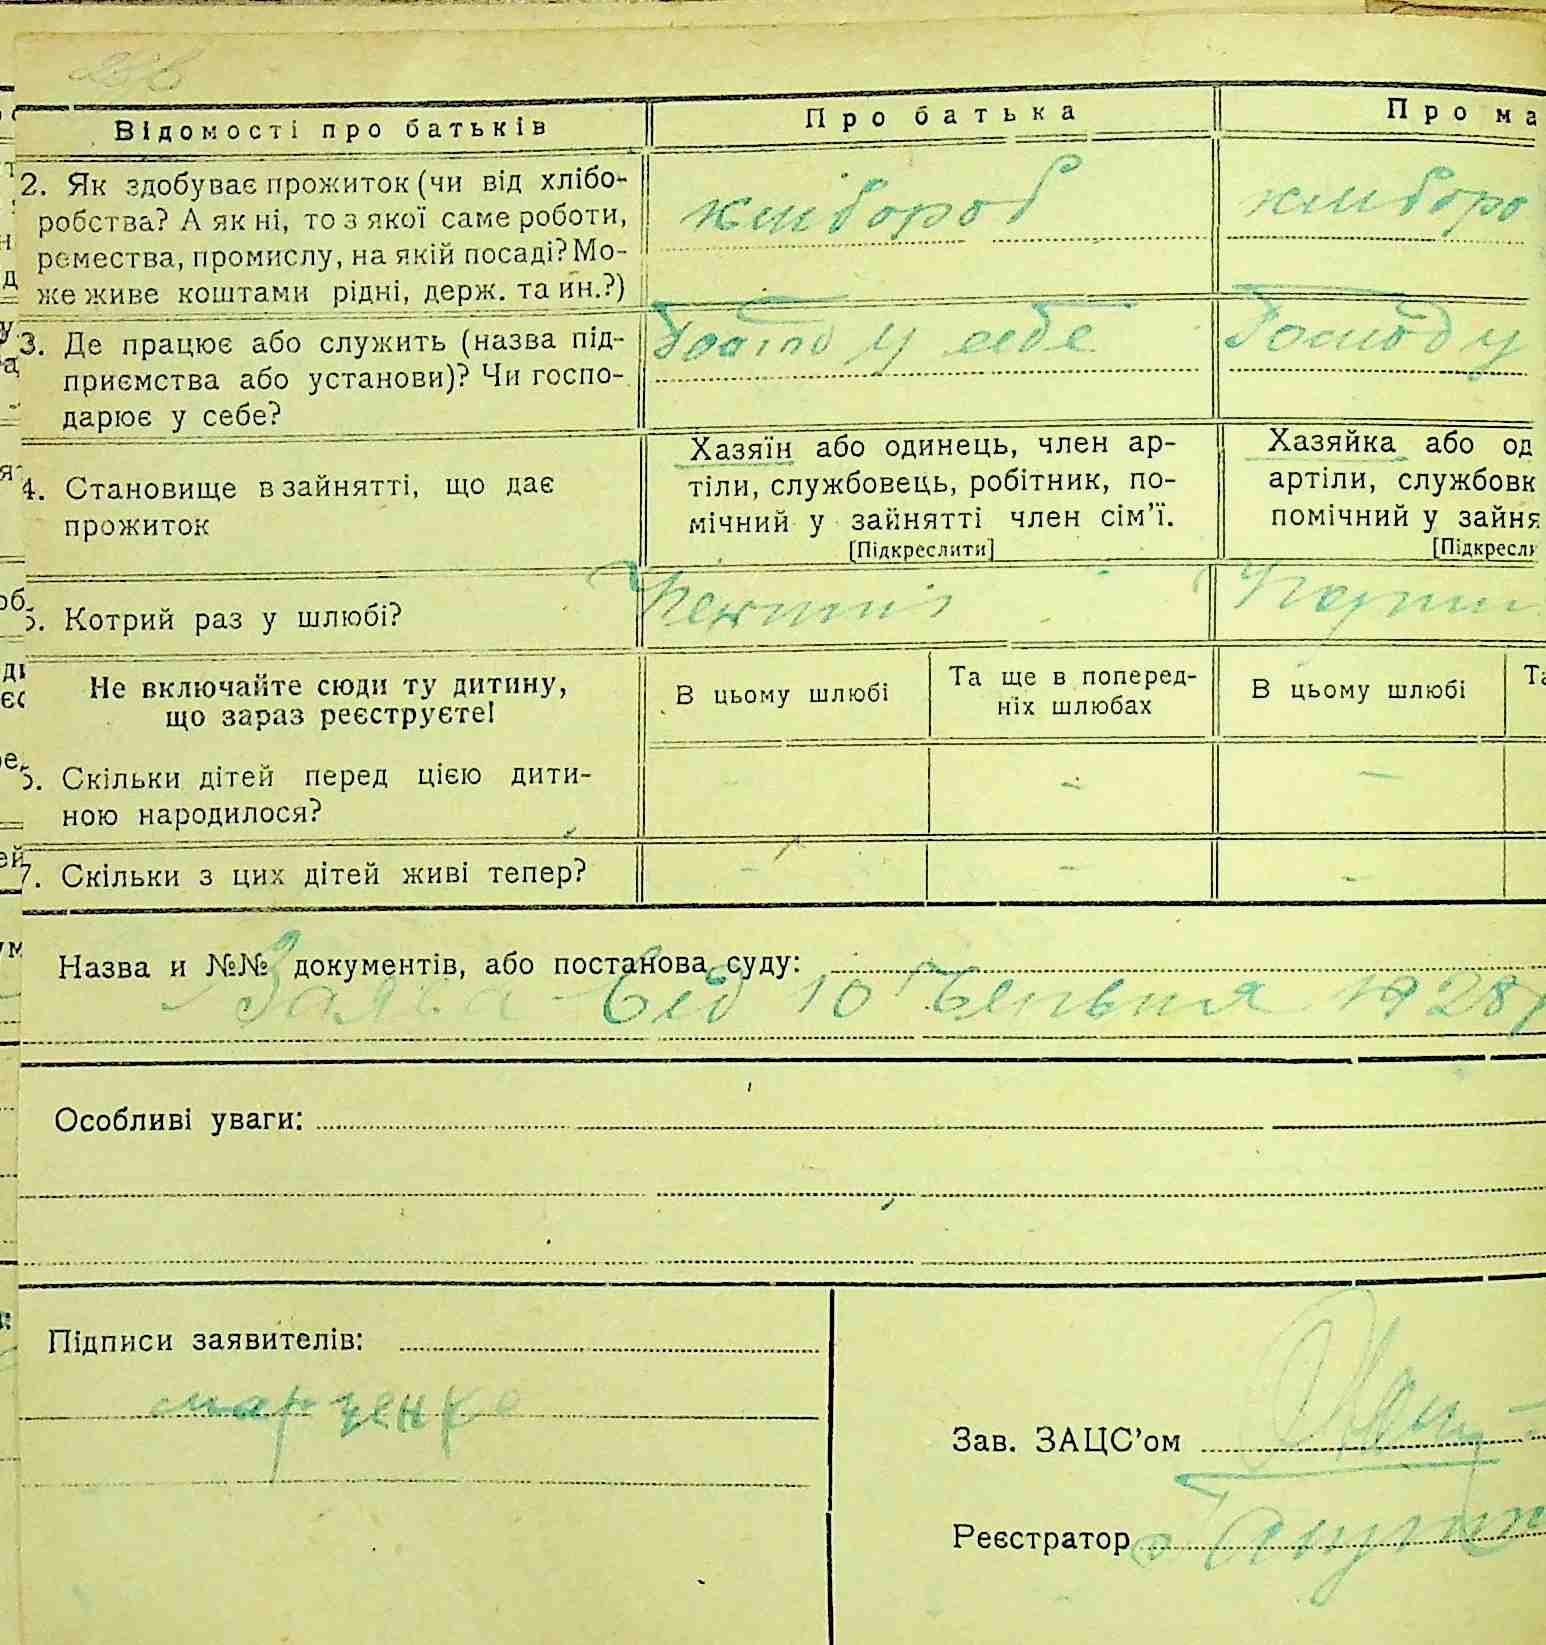 Відомості про батьків
Про батька
Про ма
2. Як здобуває прожиток (чи від хлібо-
робства? А як ні, то з якої саме роботи,
ремества, промислу, на якій посаді? Мо-
же живе коштами рідні, держ. та ин.?)
хлібороб
хліборо
3. Де працює або служить (назва під-
приємства або установи)? Чи госпо-
дарює у себе?
у себе
Господ у
4. Становище в зайнятті, що дає
прожиток
Хазяїн або одинець, член ар-
тіли, службовець, робітник, по-
мічний у зайнятті член сім'ї.
[Підкреслити]
Хазяйка або од
артіли, службовк
помічний у зайня
[Підкресли
5. Котрий раз у шлюбі?
Не включайте сюди ту дитину,
що зараз реєструєте!
В цьому шлюбі
Та ще в поперед-
ніх шлюбах
В цьому шлюбі
Та
6. Скільки дітей перед цією дити-
ною народилося?
- - -
7. Скільки з цих дітей живі тепер?
- - -
Назва и №№ документів, або постанова суду:
Заява від 10 Червня 1928р
Особливі уваги:
Підписи заявителів:
марченко
Зав. ЗАЦС'ом
Реєстратор